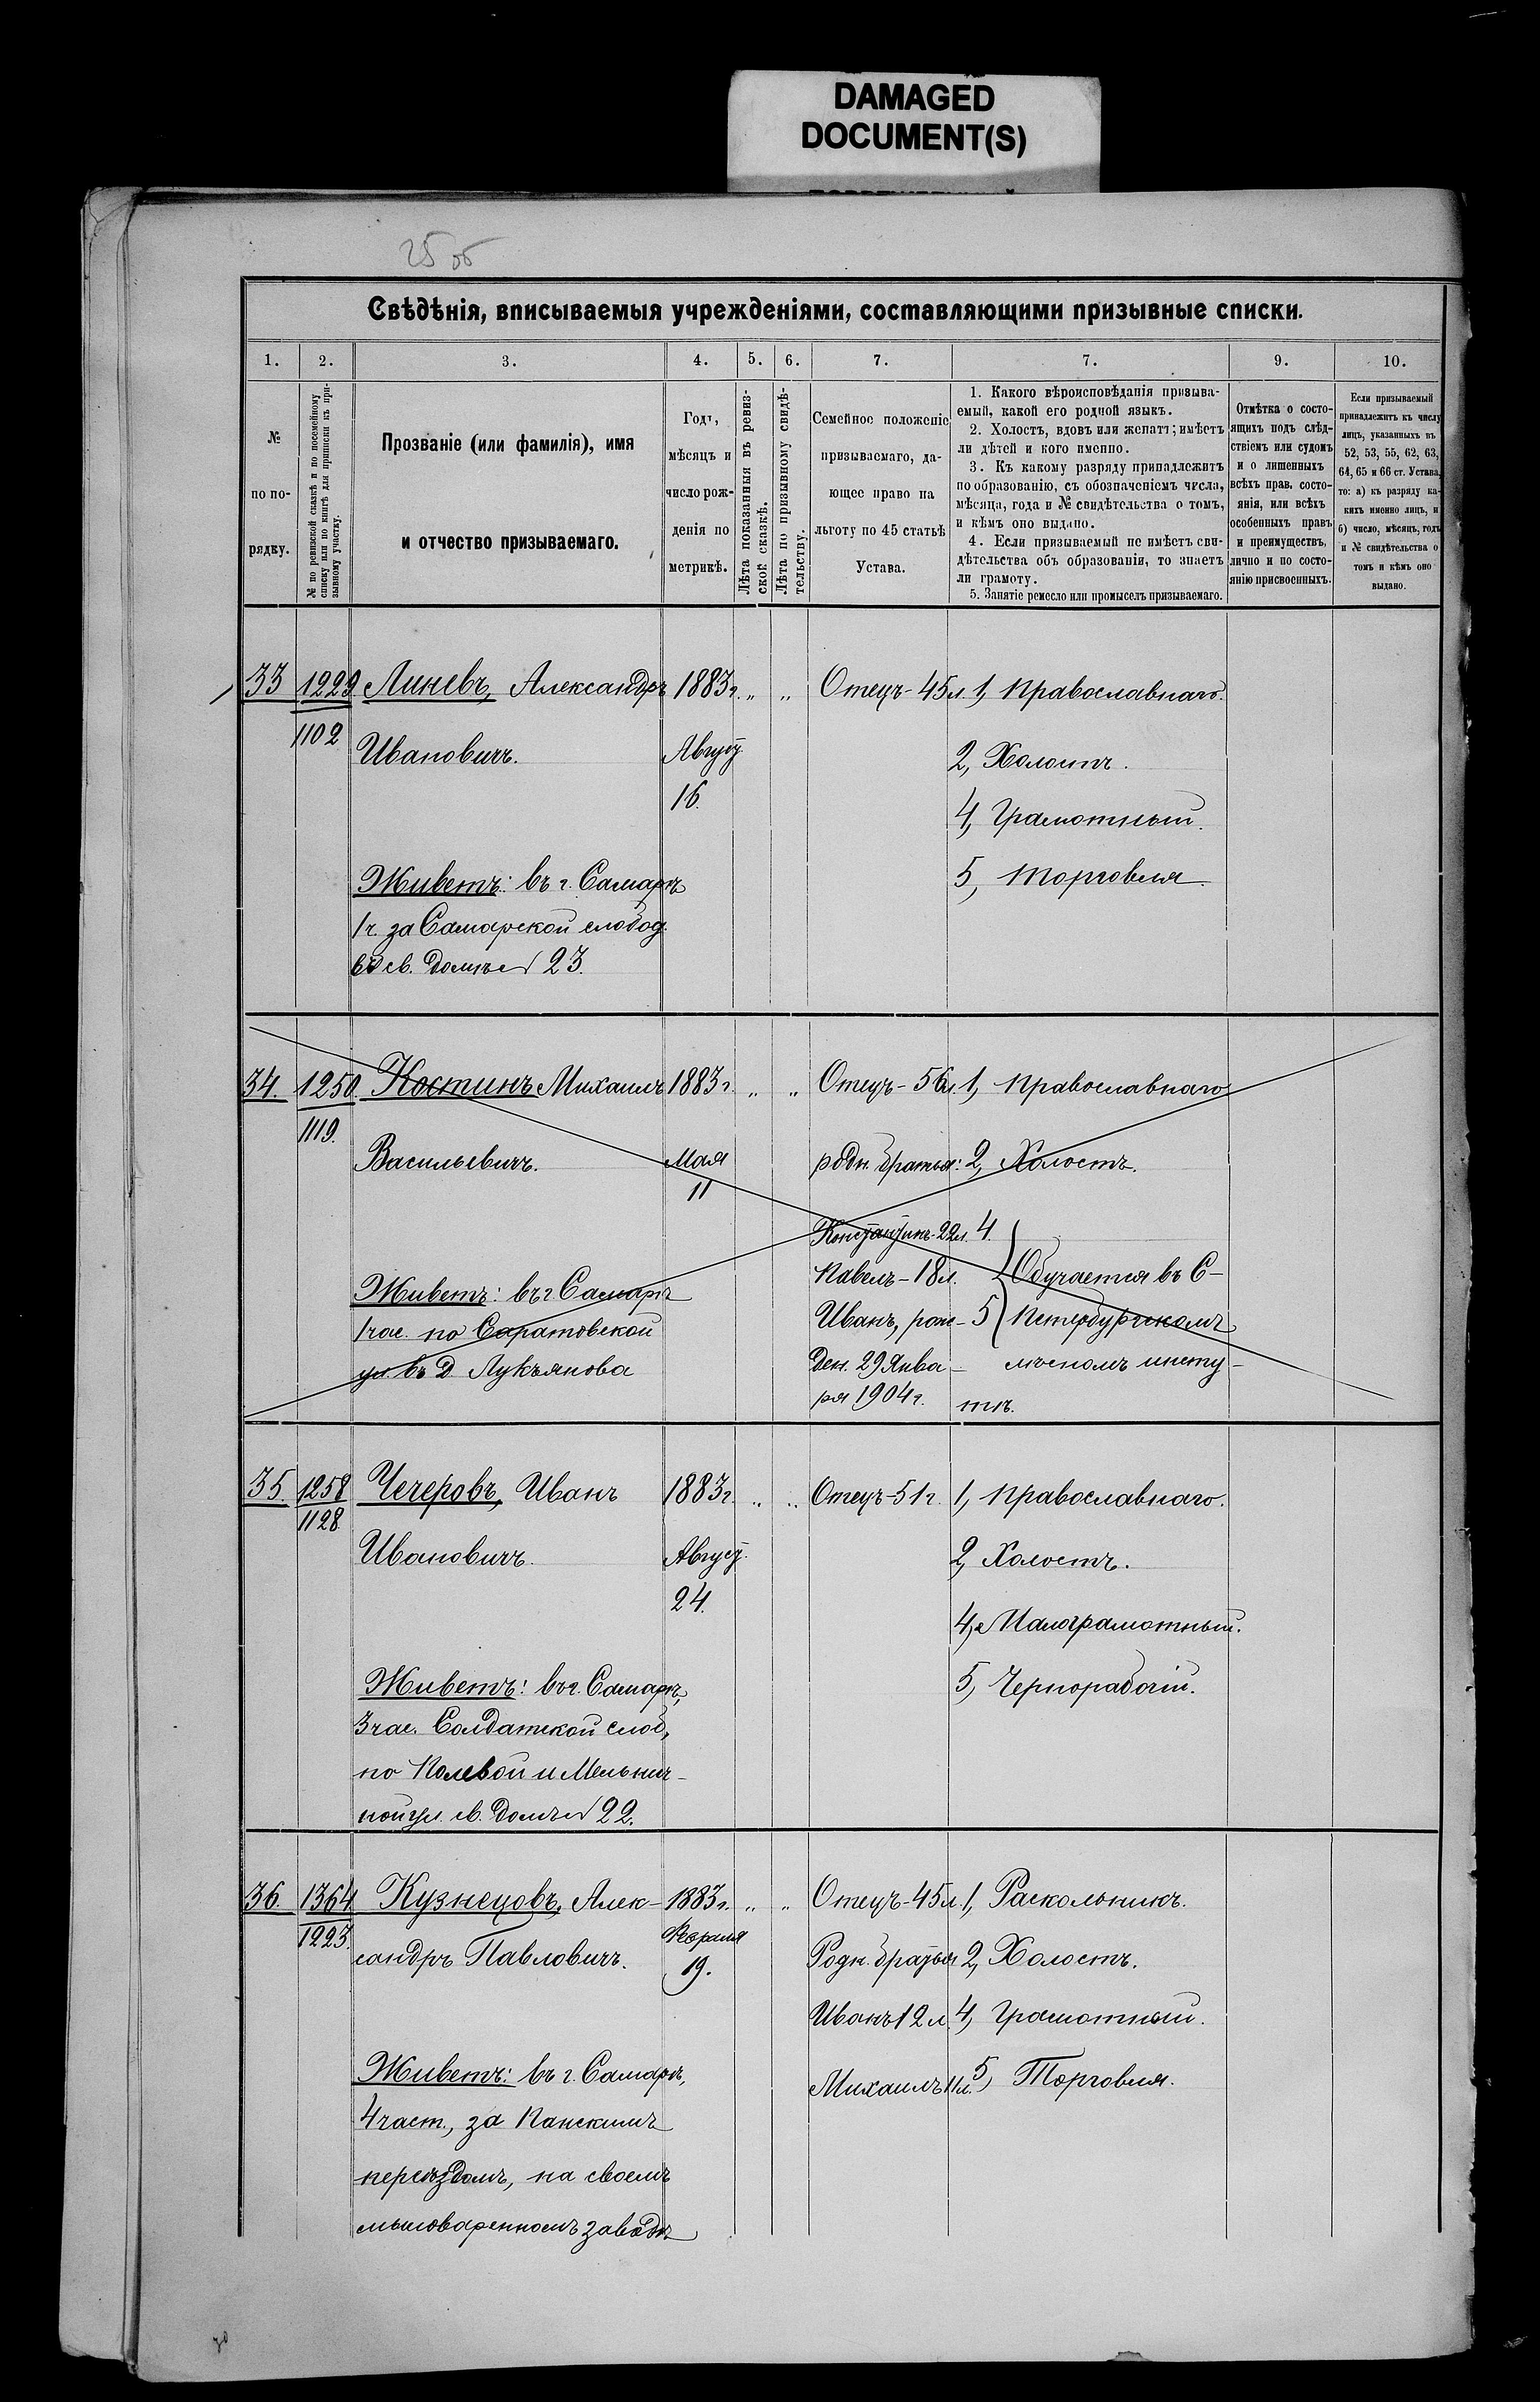 DAMAGED
DOCUMENT(S)
25 об
Свѣдѣнія, вписываемыя учрежденіями, составляющими призывные списки.
1. 2. 3. 4. 5. 6. 7. 7. 9. 10.
№
по по-
рядку.
№ по ревизской сказкѣ и по посемейному
списку или по книгѣ для приписки къ при-
зывному участку.
Прозваніе (или фамилія), имя
и отчество призываемаго.
Годъ,
мѣсяцъ и
число рож-
денія по
метрикѣ.
Лѣта показанныя въ ревиз-
ской сказкѣ.
Лѣта по призывному свидѣ-
тельству.
Семейное положеніе
призываемаго, да-
ющее право на
льготу по 45 статьѣ
Устава.
1. Какого вѣроисповѣданія призыва-
емый, какой его родной языкъ.
2. Холостъ, вдовъ или женатъ; имѣетъ
ли дѣтей и кого именно.
3. Къ какому разряду принадлежитъ
по образованію, съ обозначеніемъ числа,
мѣсяца, года и № свидѣтельства о томъ,
и кѣмъ оно выдано.
4. Если призываемый не имѣетъ сви-
дѣтельства объ образованіи, то знаетъ
ли грамоту.
5. Занятіе ремесло или промыселъ призываемаго.
Отмѣтка о состо-
ящихъ подъ слѣд-
ствіемъ или судомъ
и о лишенныхъ
всѣхъ прав. состо-
янія, или всѣхъ
особенныхъ правъ
и преимуществъ,
лично и по состо-
янію присвоенныхъ.
Если призываемый
принадлежитъ къ числу
лицъ, указанныхъ въ
52, 53, 55, 62, 63,
64, 65 и 66 ст. Устава,
то: а) къ разряду ка-
кихъ именно лицъ, и
б) число, мѣсяцъ, годъ
и № свидѣтельства о
томъ и кѣмъ оно
выдано.
33 1229. Линевъ, Александръ 1883г. " " Отецъ-45л. 1, Православнаго.
1102 Ивановичъ. Августъ 2, Холостъ.
16. 4, Грамотный.
Живетъ: въ г. Самарѣ 5, Торговля.
1ч. за Самарской слобод.
въ св. домѣ № 23.
34. 1250. Костинъ Михаилъ 1883г. " " Отецъ-56л. 1, Православнаго
1119. Васильевичъ. Мая родн. братья: 2, Холостъ.
11
Константинъ-22л. 4.
Живетъ: въ г Самарѣ Павелъ-18л. Обучается въ С-
1час. по Саратовской Иванъ, рож- 5 Петербургскомъ
ул. въ д Лукъянова ден. 29 Янва- лѣсномъ инсту-
ря 1904г. тѣ.
35. 1258 Чечеровъ, Иванъ 1883г. " " Отецъ-51г. 1, Православнаго.
1128. Ивановичъ. Август. 2, Холостъ.
24. 4, Малограмотный.
Живетъ: въ г. Самарѣ, 5, Чернорабочій.
3час. Солдатской слоб,
по Полевой и Мельнич-
ной ул. св. домъ № 22.
36. 1364 Кузнецовъ, Алек- 1883г. " " Отецъ-45л. 1, Раскольникъ.
1223. сандръ Павловичъ. Февраля 19. Родн. братья 2, Холостъ.
Иванъ 12л. 4, Грамотный.
Живетъ: въ г. Самарѣ, Михаилъ 11л. 5, Торговля.
4част., за Панскимъ
переѣздомъ, на своемъ
мыловаренномъ заводѣ